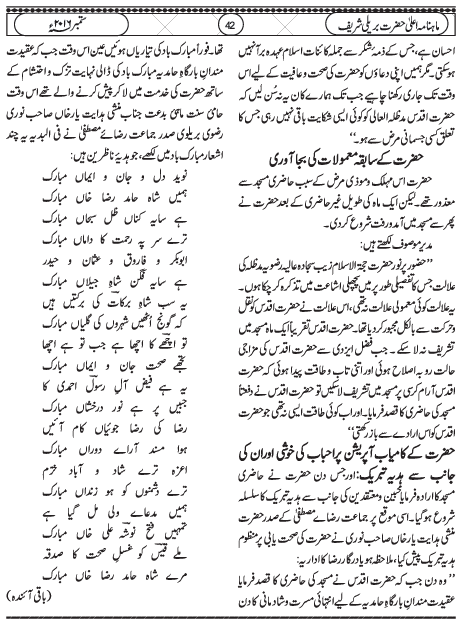 ماہنامہ اعلیٰ حضرت بریلی شریف
42
ستمبر ۲۰۱۶ء
احسان ہے، جس کے ذمۂ شکر سے جملہ کائنات اسلام عہدہ بر آ نہیں
ہو سکتی۔ مگر ہمیں اپنی دعاؤں کو حضرت کی صحت و عافیت کے لیے اس
وقت تک جاری رکھنا چاہیے جب تک ہمارے کان یہ نہ سُن لیں کہ
حضرت اقدس مدظلہ العالی کو کوئی ایسی شکایت باقی نہیں رہی جس کا
تعلق کسی جسمانی مرض سے ہو۔‘‘
حضرت کے سابقہ معمولات کی بجا آوری
حضرت اس مہلک و موذی مرض کے سبب حاضری مسجد سے
معذور تھے۔ لیکن ایک ماہ کی طویل غیر حاضری کے بعد حضرت نے
پھر سے مسجد میں آمد و رفت شروع کر دی۔
مدیر موصوف لکھتے ہیں:
’’حضور پر نور حضرت حجۃ الاسلام زیب سجادہ عالیہ رضویہ مدظلہ کی
علالت جس کا تفصیلی طور پر میں پچھلی اشاعت میں تذکرہ کر چکا ہوں۔
یہ علالت کوئی معمولی علالت نہ تھی، اس علالت نے حضرت اقدس کو نقل
و حرکت سے بالکل مجبور کر دیا تھا۔ حضرت اقدس تقریباً ایک ماہ مسجد میں
تشریف نہ لا سکے۔ جب فضل ایزدی سے حضرت اقدس کی مزاجی
حالت رو بہ اصلاح ہوئی اور اتنی تاب و طاقت پیدا ہوئی کہ حضرت
اقدس آرام کرسی پر مسجد میں تشریف لا سکیں تو حضرت اقدس نے دفعتاً
مسجد کی حاضری کا قصد فرمایا۔ اور اب کوئی طاقت ایسی نہ تھی جو حضرت
اقدس کو اس ارادے سے باز رکھتی‘‘
حضرت کے کامیاب آپریشن پر احباب کی خوشی اور ان کی
جانب سے ہدیہ تبریک: اور جس دن حضرت نے حاضری
مسجد کا ارادہ فرمایا محبین و معتقدین کی جانب سے ہدیہ تبریک کا سلسلہ
شروع ہو گیا۔ اسی موقع پر جماعت رضائے مصطفیٰ کے صدر حضرت
منشی ہدایت یار خاں صاحب نوری نے حضرت کی صحت یابی پر منظوم
ہدیہ تبریک پیش کیا، ملاحظہ ہو یادگار رضا کا اداریہ:
’’وہ دن جب کہ حضرت اقدس نے مسجد کی حاضری کا قصد فرمایا
عقیدت مندان بارگاہ حامدیہ کے لیے انتہائی مسرت و شادمانی کا دن
تھا۔ فوراً مبارک باد کی تیاریاں ہوئیں عین اس وقت جب کہ عقیدت
مندان بارگاہ حامدیہ مبارک باد کی ڈالی نہایت تزک و احتشام کے
ساتھ حضرت کی خدمت میں لا کر پیش کرنے والے تھے اس وقت
حامیٔ سنت ماحیٔ بدعت جناب منشی ہدایت یار خاں صاحب نوری
رضوی بریلوی صدر جماعت رضائے مصطفیٰ نے فی البدیہہ یہ چند
اشعار مبارک باد میں لکھے، جو ہدیۂ ناظرین ہیں:
نوید دل و جان و ایماں مبارک
ہمیں شاہ حامد رضا خاں مبارک
ہے سایہ کناں ظل سبحاں مبارک
ترے سر پہ رحمت کا داماں مبارک
ابوبکر و فاروق و عثمان و حیدر
ہے سایہ فگن شاہ جیلاں مبارک
یہ سب شاہ برکات کی برکتیں ہیں
کہ گونج اٹھیں شہروں کی گلیاں مبارک
تو اچھے کا اچھا ہے جب تو ہے اچھا
تجھے صحت جان و ایماں مبارک
یہ ہے فیض آل رسول احمدی کا
جبیں پر ہے نور درخشاں مبارک
رضا کی رضا جوئیاں کام آئیں
ہوا مسند آرائے دوراں مبارک
اعزہ ترے شاد و آباد خرم
ترے دشمنوں کو ہو زنداں مبارک
ہمیں مدعائے ولی مل گیا ہے
تمہیں فتح نوشہ علی خاں مبارک
ملے قیس کو غسل صحت کا صدقہ
مرے شاہ حامد رضا خاں مبارک
(باقی آئندہ)